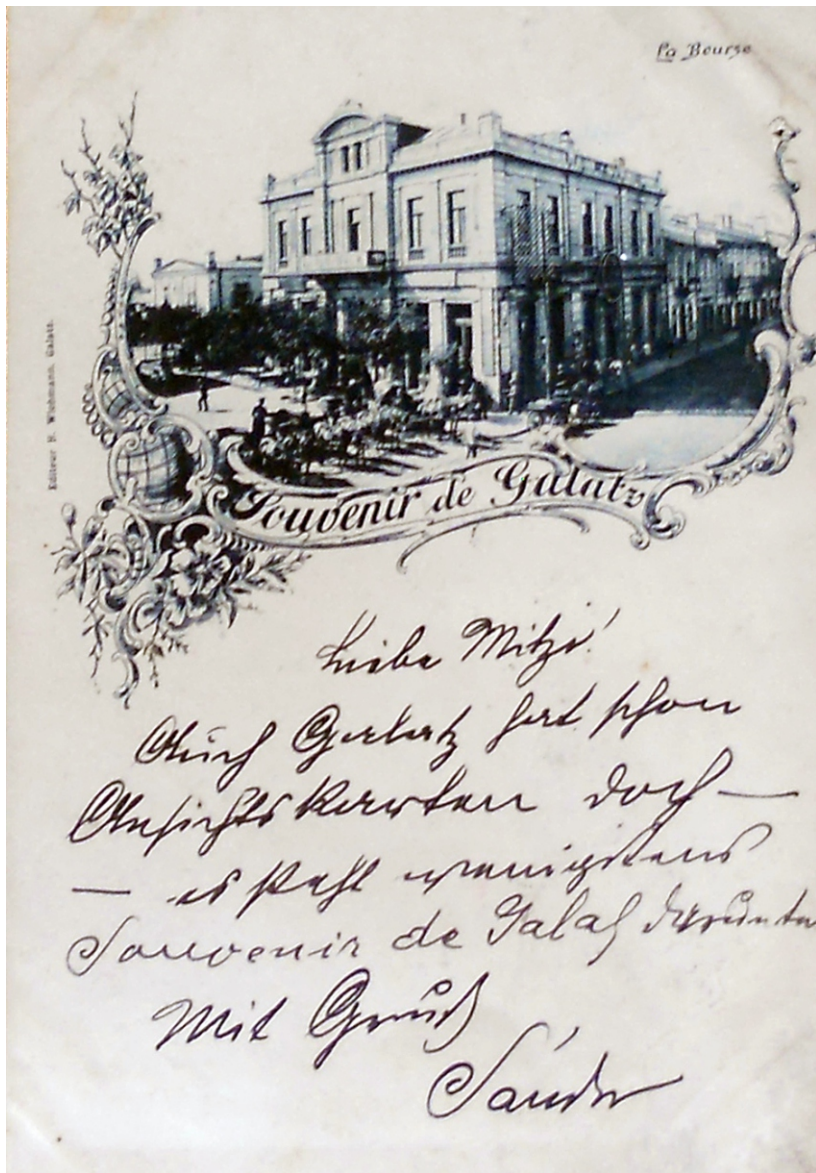 La Bourse
Editeur H. Wiehmann, Galatz.
Souvenir de Galatz
Liebe Mitzi!
Auch Galatz hat schon
Ansichtskarten doch —
— es steht wenigstens
Souvenir de Galatz darunter
Mit Gruß
Sándor